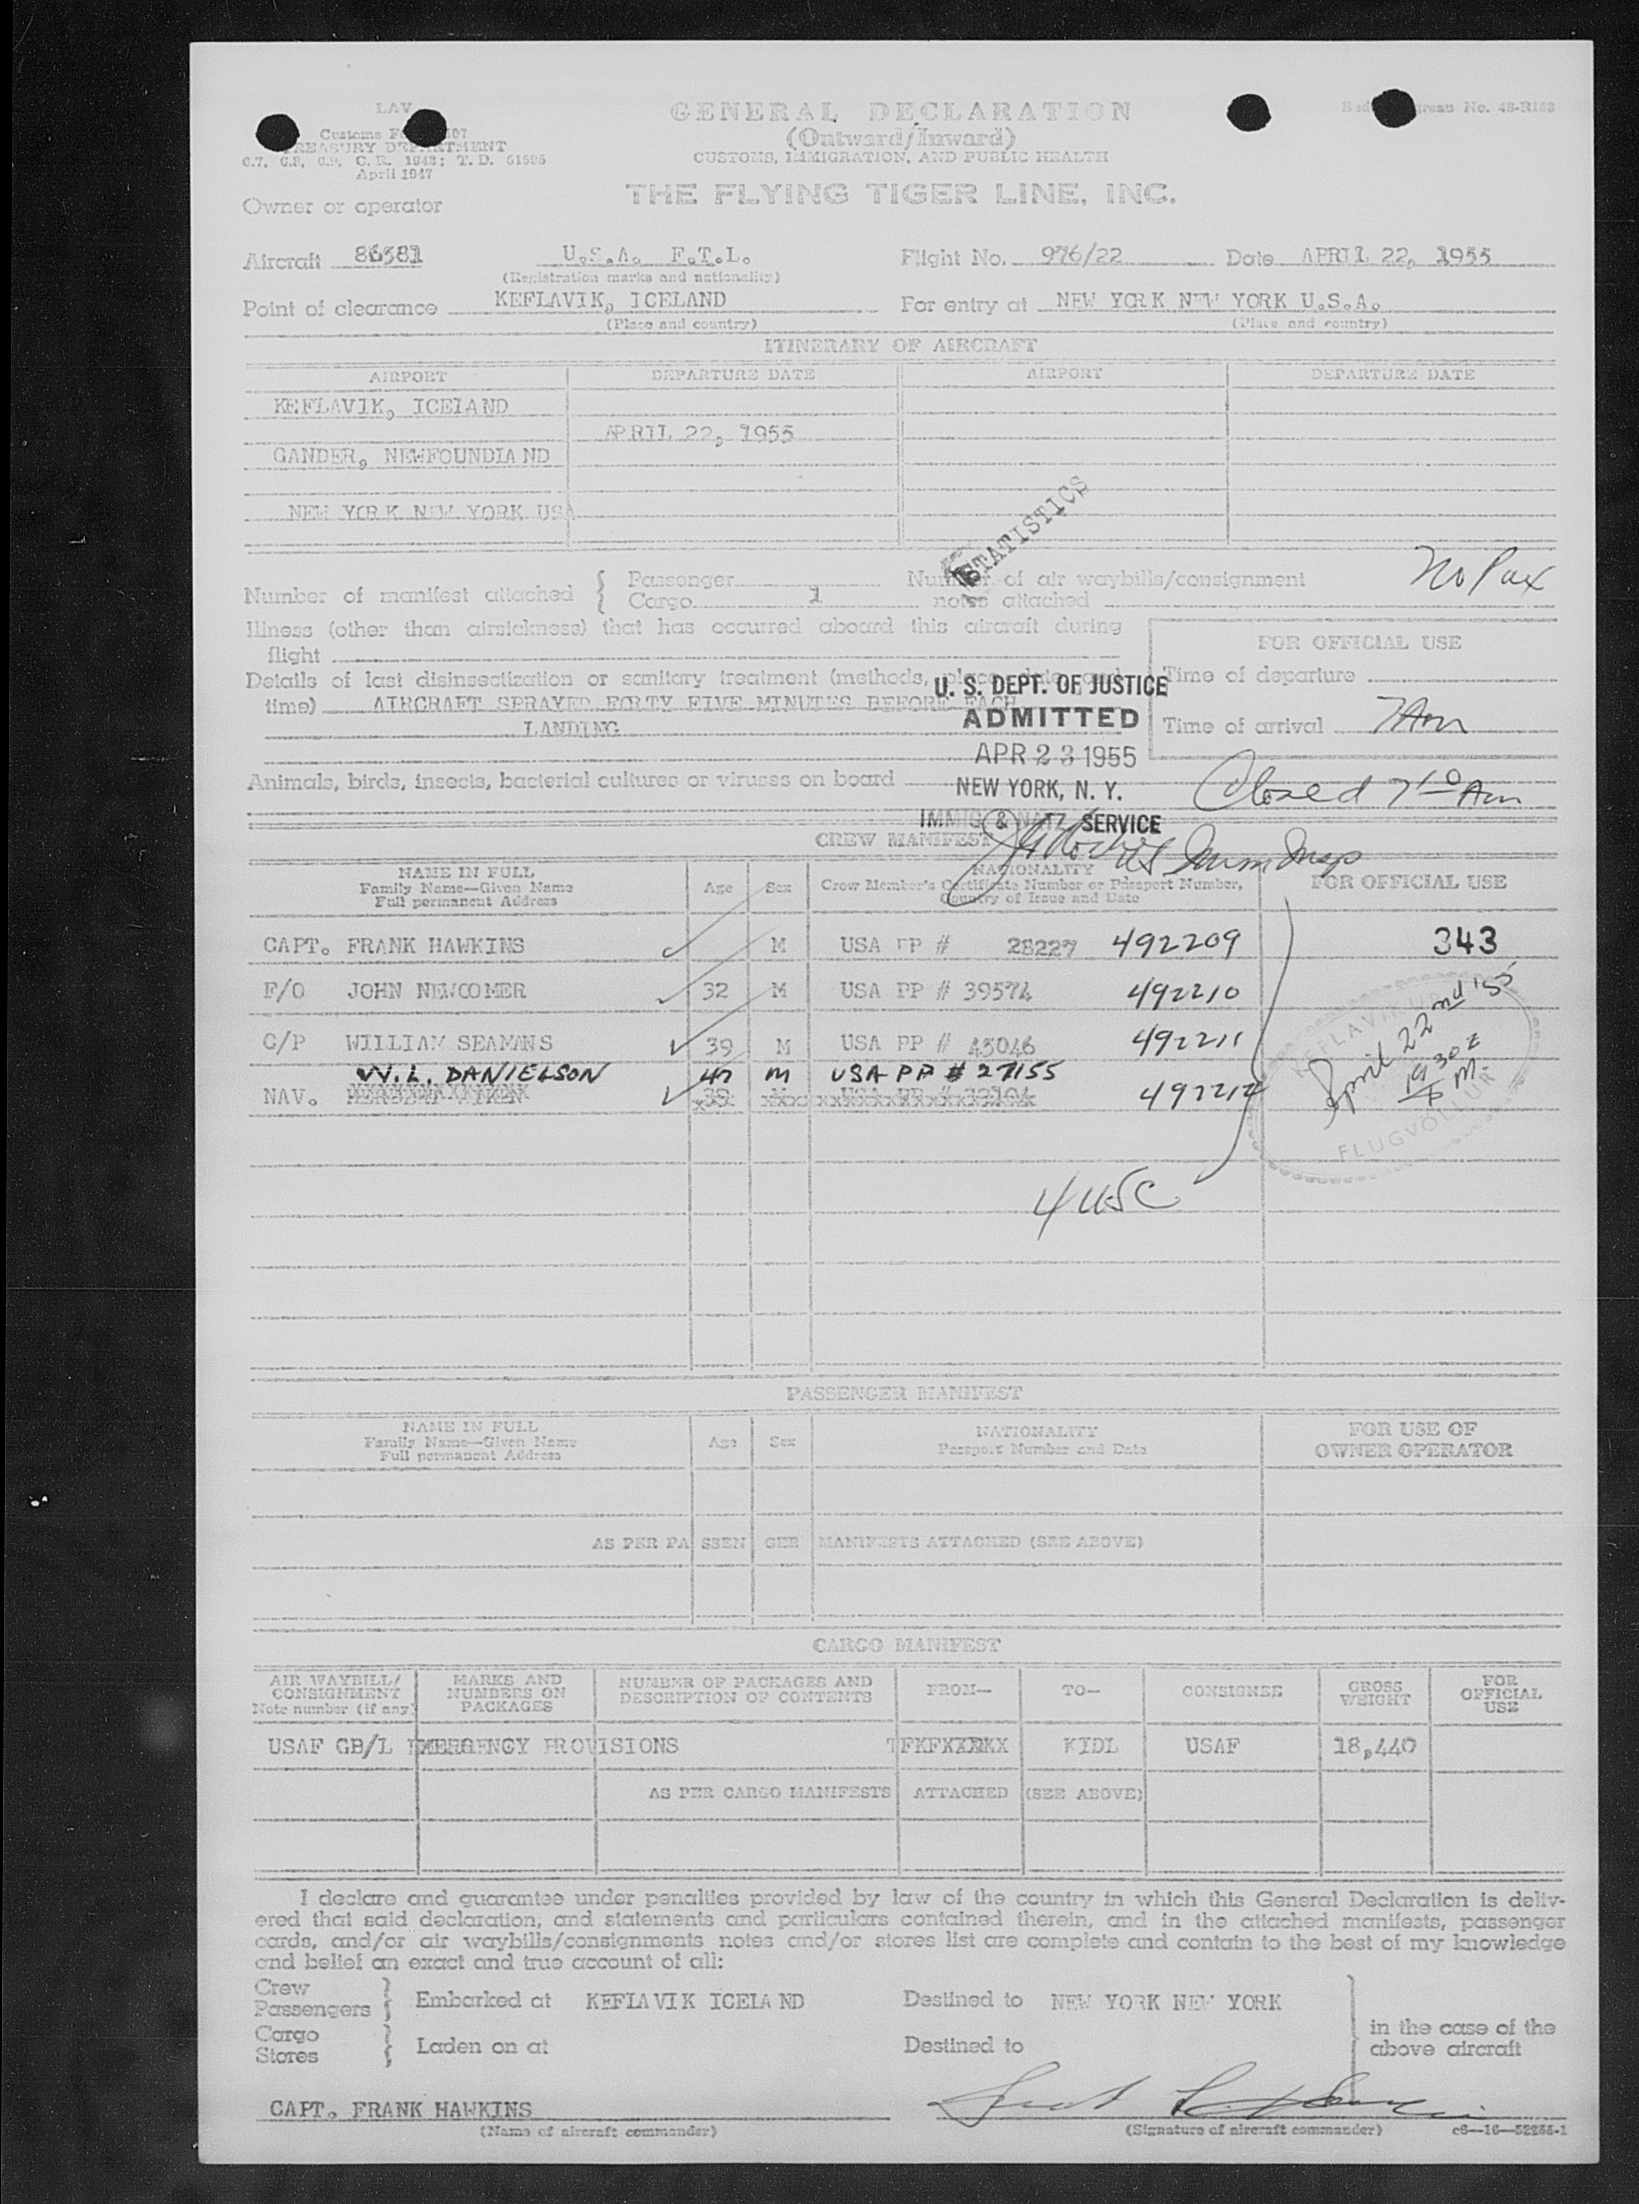 LAV
GENERAL DECLARATION
(Outward/Inward)
CUSTOMS, IMMIGRATION, AND PUBLIC HEALTH
Customs
TREASURY DEPARTMENT
April 1947
THE FLYING TIGER LINE, INC.
Owner or operator
Aircraft 86581 U.S.A. F.T.L. Flight No. 976/22 Date APRIL 22, 1955
(Registration marks and nationality)
Point of clearance KEFLAVIK, ICELAND For entry at NEW YORK NEW YORK U.S.A.
(Place and country) (Place and country)
ITINERARY OF AIRCRAFT
AIRPORT DEPARTURE DATE AIRPORT DEPARTURE DATE
KEFLAVIK, ICELAND
APRIL 22, 1955
GANDER, NEWFOUNDLAND
NEW YORK NEW YORK USA
STATISTICS
No Pax
Number of manifest attached { Passenger Number of air waybills/consignment
Cargo 1 notes attached
Illness (other than airsickness) that has occurred aboard this aircraft during
flight
FOR OFFICIAL USE
Details of last disinsectization or sanitary treatment (methods, place, date, and
time) AIRCRAFT SPRAYED FORTY FIVE MINUTES BEFORE EACH
LANDING
Time of departure
Time of arrival 7 Am
U. S. DEPT. OF JUSTICE
ADMITTED
APR 23 1955
NEW YORK, N. Y.
IMMIG. & NATZ. SERVICE
Animals, birds, insects, bacterial cultures or viruses on board
Closed 7 10 Am
CREW MANIFEST
Imm Insp
NAME IN FULL
Family Name—Given Name
Full permanent Address
Age Sex
NATIONALITY
Crew Member's Certificate Number or Passport Number,
Country of Issue and Date
FOR OFFICIAL USE
CAPT. FRANK HAWKINS M USA PP # 28227 492209 343
F/O JOHN NEWCOMER 32 M USA PP # 39574 492210
C/P WILLIAM SEAMANS 39 M USA PP # 43046 492211
W.L. DANIELSON 47 M USA PP # 27155
NAV. 492212
KEFLAVIKUR
April 22nd '55
1930z
FLUGVÖLLUR
4 USC
PASSENGER MANIFEST
NAME IN FULL
Family Name—Given Name
Full permanent Address
Age Sex
NATIONALITY
Passport Number and Date
FOR USE OF
OWNER OPERATOR
AS PER PASSENGER MANIFESTS ATTACHED (SEE ABOVE)
CARGO MANIFEST
AIR WAYBILL/
CONSIGNMENT
Note number (if any)
MARKS AND
NUMBERS ON
PACKAGES
NUMBER OF PACKAGES AND
DESCRIPTION OF CONTENTS
FROM— TO— CONSIGNEE
GROSS
WEIGHT
FOR
OFFICIAL
USE
USAF GB/L EMERGENCY PROVISIONS KIDL USAF 18,440
AS PER CARGO MANIFESTS ATTACHED (SEE ABOVE)
I declare and guarantee under penalties provided by law of the country in which this General Declaration is deliv-
ered that said declaration, and statements and particulars contained therein, and in the attached manifests, passenger
cards, and/or air waybills/consignments notes and/or stores list are complete and contain to the best of my knowledge
and belief an exact and true account of all:
Crew
Passengers } Embarked at KEFLAVIK ICELAND Destined to NEW YORK NEW YORK
Cargo
Stores } Laden on at Destined to
in the case of the
above aircraft
CAPT. FRANK HAWKINS
(Name of aircraft commander) (Signature of aircraft commander)